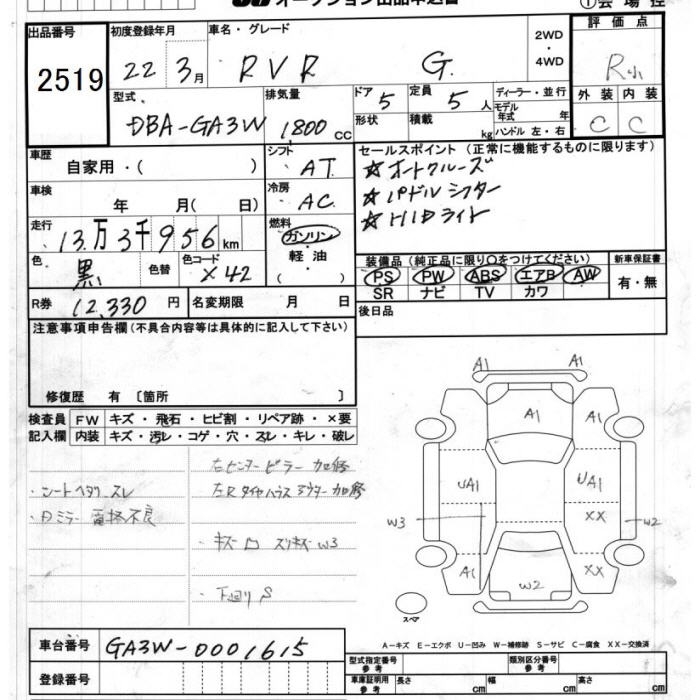 オークション出品申込書
①会場控
出品番号
2519
初度登録年月
22年 3月
車名・グレード
RVR G
2WD
・
4WD
評価点
R小
型式
DBA-GA3W
排気量
1800cc
ドア 5
形状
定員 5人
積載 kg
ディーラー・並行
モデル年式 年
ハンドル 左・右
外装 内装
C C
車歴
自家用・( )
シフト
AT
セールスポイント(正常に機能するものに限ります)
☆オートクルーズ
☆パドルシフター
☆HIDライト
車検
年 月( 日)
冷房
AC
走行
13万3千956km
燃料
ガソリン
・
軽油
・
( )
色
黒
色替
色コード
X42
装備品(純正品に限り○をつけてください)
PS PW ABS エアB AW
SR ナビ TV カワ
新車保証書
有・無
R券 12,330円
名変期限 月 日
後日品
注意事項申告欄(不具合内容等は具体的に記入して下さい)
修復歴 有 〔箇所 〕
検査員記入欄
FW キズ・飛石・ヒビ割・リペア跡・×要
内装 キズ・汚レ・コゲ・穴・スレ・キレ・破レ
右センターピラー加修
・シートヘタリ スレ
左Rタイヤハウス アウター加修
・Dミラー電格不良
・キズ凹 スリキズW3
・下廻りS
A1 A1
A1
A1 A1
UA1 UA1
W3 XX W2
A1 XX
W2
スペア
A-キズ E-エクボ U-凹み W-補修跡 S-サビ C-腐食 XX-交換済
車台番号
GA3W-0001615
登録番号
型式指定番号 参考
類別区分番号 参考
車庫証明用 参考
長さ cm 幅 cm 高さ cm